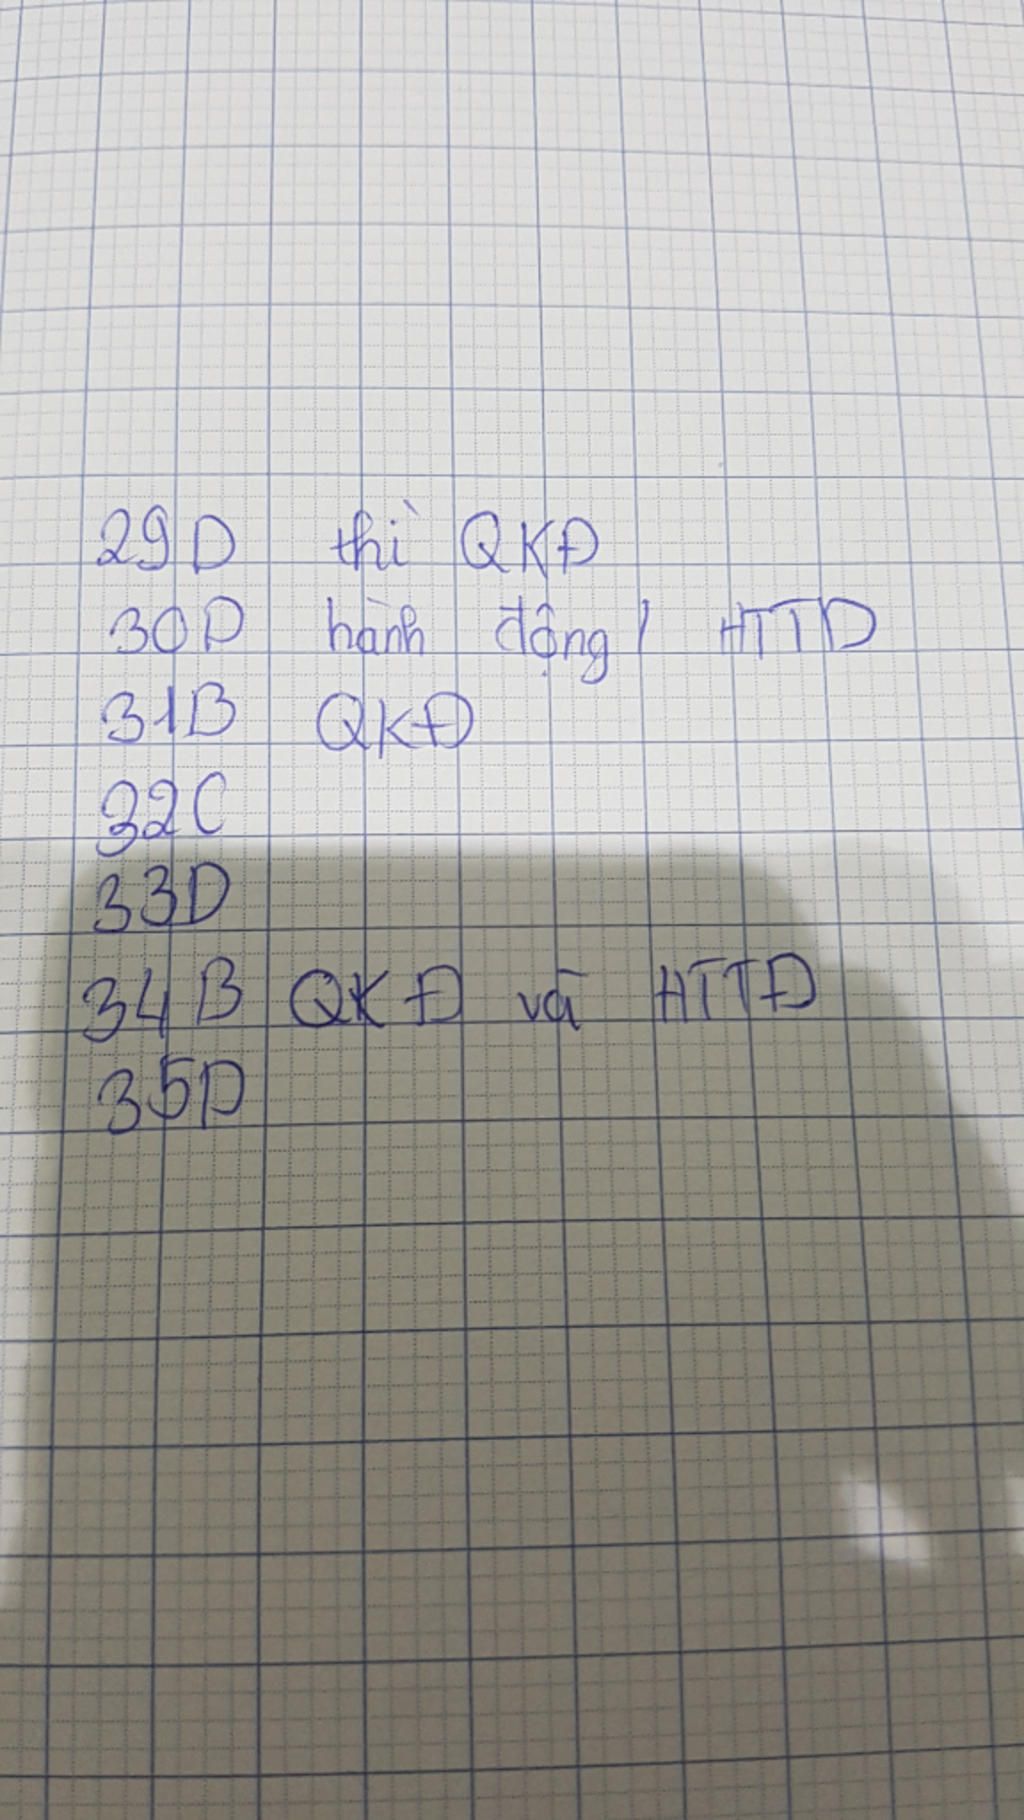 29D thì QKĐ
30D hành động / HTTD
31B QKĐ
32C
33D
34B QKĐ và HTTĐ
35D